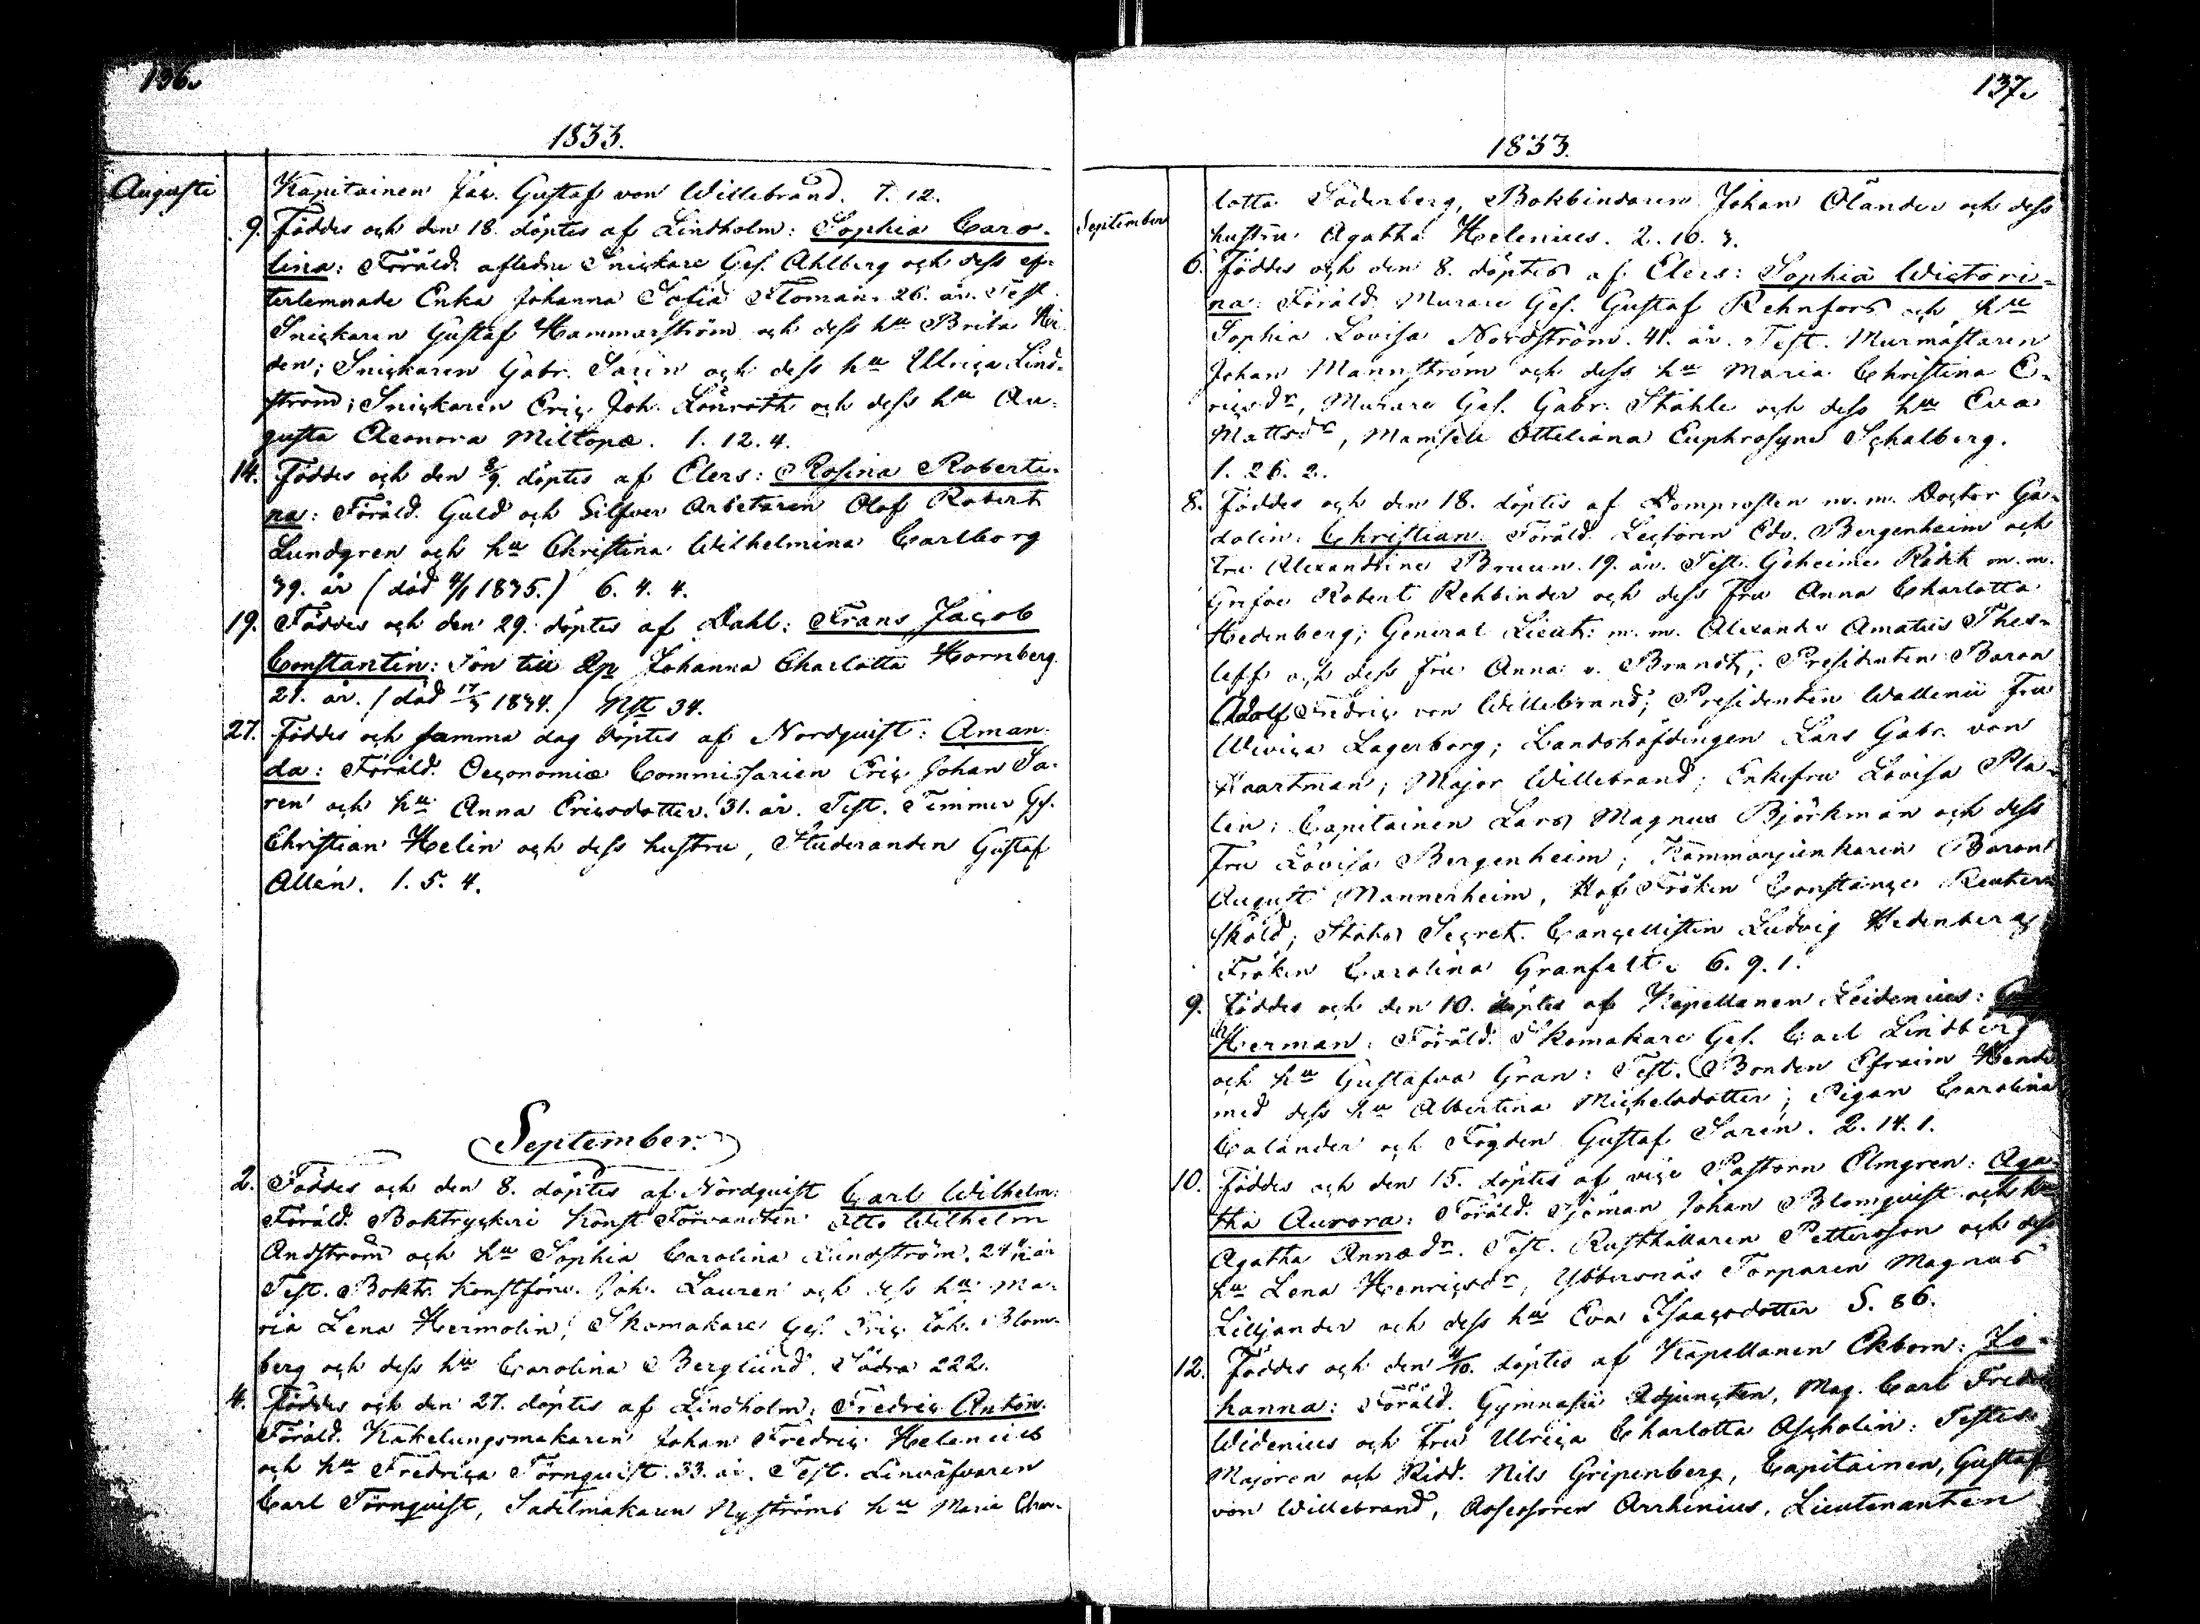 136.
1833.
Augusti
Kapitainen Gustaf von Willebrand. 1. 12.
9. Föddes och den 18. döptes af Lindholm: Sophia Caro-
lina: Föräld. aflednu Snickare Ges. Ahlberg och dess ef-
terlemnade Enka Johanna Sofia Floman. 26. år. Test.
Snickaren Gustaf Hammarström och dess hu Brita
den; Snickaren Gabr. Sarin och dess hu Ulrica Lind-
ström; Snickaren Eric Joh. Lönroth och dess hu Au-
gusta Eleonora Miltopæ. 1. 12. 4.
14. Föddes och den 8/9 döptes af Elers: Rosina Roberti-
na: Föräld. Guld och Silfver Arbetaren Olof Robert
Lundgren och hu Christina Wilhelmina Carlborg
39. år (död 4/1 1835.) 6. 4. 4.
19. Föddes och den 29. döptes af Dahl: Frans Jacob
Constantin: Son till Johanna Charlotta Hornberg.
21. år. (död 17/3 1834.) 34.
27. Föddes och samma dag döptes af Nordquist: Aman-
da: Föräld. Oeconomiæ Commissarien Eric Johan Sa-
ren och hu Anna Ericsdotter. 31. år. Test. Timmer Ges.
Christian Helin och dess hustru, Studeranden Gustaf
Allén. 1. 5. 4.
September.
2. Föddes och den 8. döptes af Nordquist Carl Wilhelm:
Föräld. Boktryckeri Konst Förvandten Otto Wilhelm
Andström och hu Sophia Carolina Lundström. 24 år
Test. Boktr. Konstförv. Joh. Lauren och dess hu Ma-
ria Lena Hermolin; Skomakare Ges. Eric Joh. Blom-
berg och dess hu Carolina Berglund. Södra 222.
4. Föddes och den 27. döptes af Lindholm: Fredric Anton.
Föräld. Kakelungsmakaren Johan Fredric Helenius
och hu Fredrica Törnquist. 33. år. Test. Linväfvaren
Carl Törnquist, Sadelmakaren Nyströms hu Maria Char-
137.
1833.
September
lotta Söderberg, Bokbindaren Johan Ölander och dess
hustru Agatha Helenius. 2. 10. 3.
6. Föddes och den 8. döptes af Elers: Sophia Wictori-
na: Föräld. Murare Ges. Gustaf Rehnfors och hu
Sophia Lovisa Nordström. 41. år. Test. Murmästaren
Johan Mannström och dess hu Maria Christina E-
ricsdr, Murare Ges. Gabr. Ståhle och dess hu Eva
Mattsdr, Mamsell Otteliana Euphrosyne Schalberg.
1. 26. 2.
8. Föddes och den 18. döptes af Domprosten m. m. Doctor Ga-
dolin: Christian. Föräld. Lectoren Edv. Bergenheim och
Fru Alexandrine Bruun. 19. år. Test. Geheime Rådet m. m.
Grefve Robert Rehbinder och dess Fru Anna Charlotta
Hedenberg; General Lieut: m. m. Alexander Amatus Thes-
leff och dess Fru Anna v. Brandt; Presidenten Baron
Adolf Fredric von Willebrand; Presidenten Wallenii Fru
Wivica Lagerborg; Landshöfdingen Lars Gabr. von
Haartman; Major Willebrand; Enkefru Lovisa Pla-
tin; Capitainen Lars Magnus Björkman och dess
Fru Lovisa Bergenheim; Kammarjunkaren Baron
August Mannerheim, Hof Fröken Constance Reuter-
sköld; Stats Secret. Cancellisten Ludvig Hedenberg
Fröken Carolina Granfelt. 6. 9. 1.
9. Föddes och den 10. döptes af Kapellanen Leidenius:
Herman: Föräld. Skomakare Ges. Carl Lindberg
och hu Gustafva Gran: Test. Bonden Efraim
med dess hu Albertina Michelsdotter; Pigan Carolina
Calander och Fogden Gustaf Saren. 2. 14. 1.
10. Föddes och den 15. döptes af vice Pastorn Elmgren: Aga-
tha Aurora: Föräld. Sjöman Johan Blomquist och hu
Agatha Annædr. Test. Rusthållaren Pettersson och dess
hu Lena Henricsdr, Ybbersnäs Torparen Magnus
Liljander och dess hu Eva Isaacsdotter S. 86.
12. Föddes och den 4/10. döptes af Kapellanen Ekbom: Jo-
hanna: Föräld. Gymnasii Adjuncten, Mag. Carl Fredr
Widenius och Fru Ulrica Charlotta Ascholin: Testes:
Majoren och Ridd. Nils Gripenberg, Capitainen, Gustaf
von Willebrand, Assessoren Arrhenius, Lieutenanten